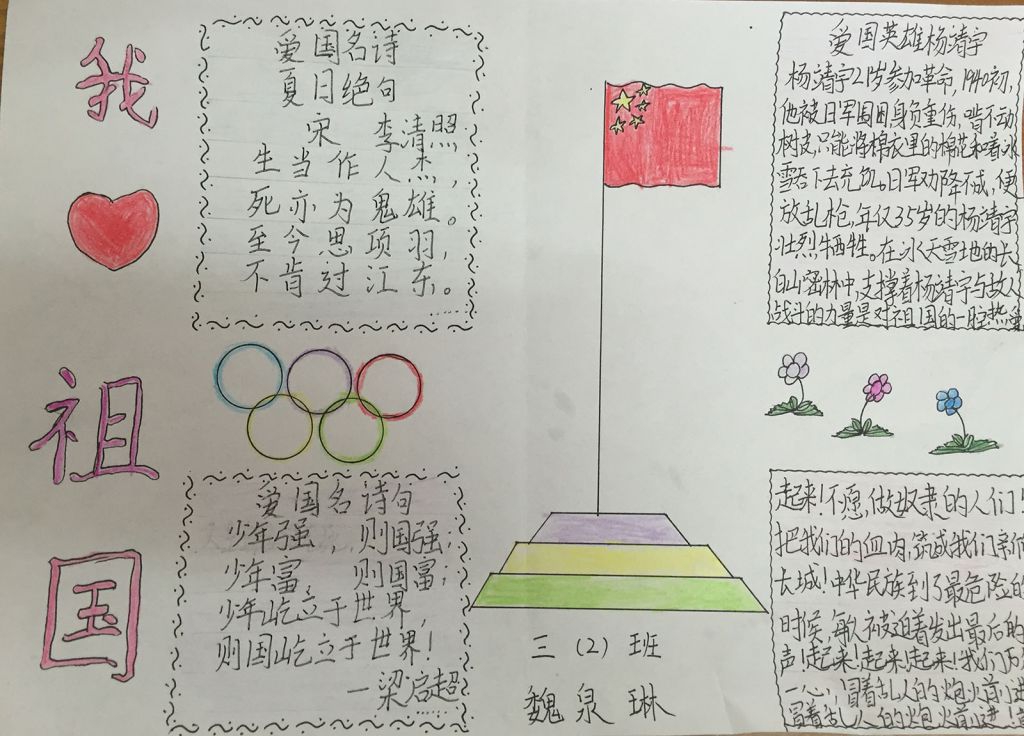 我
祖
国
爱国名诗
夏日绝句
宋 李清照
生当作人杰，
死亦为鬼雄。
至今思项羽，
不肯过江东。
爱国名诗句
少年强，则国强；
少年富，则国富；
少年屹立于世界，
则国屹立于世界！
—梁启超
三（2）班
魏泉琳
爱国英雄杨靖宇
杨靖宇21岁参加革命，1940初，
他被日军围困身负重伤，啃不动
树皮，只能将棉衣里的棉花和着冰
雪吞下去充饥。日军劝降不成，便
放乱枪，年仅35岁的杨靖宇
壮烈牺牲。在冰天雪地的长
白山密林中，支撑着杨靖宇与敌人
战斗的力量是对祖国的一腔热
起来！不愿做奴隶的人们！
把我们的血肉，筑成我们新的
长城！中华民族到了最危险的
时候，每人被迫着发出最后的
声！起来！起来！起来！我们万
一心，冒着乱人的炮火前进
冒着乱人的炮火前进！